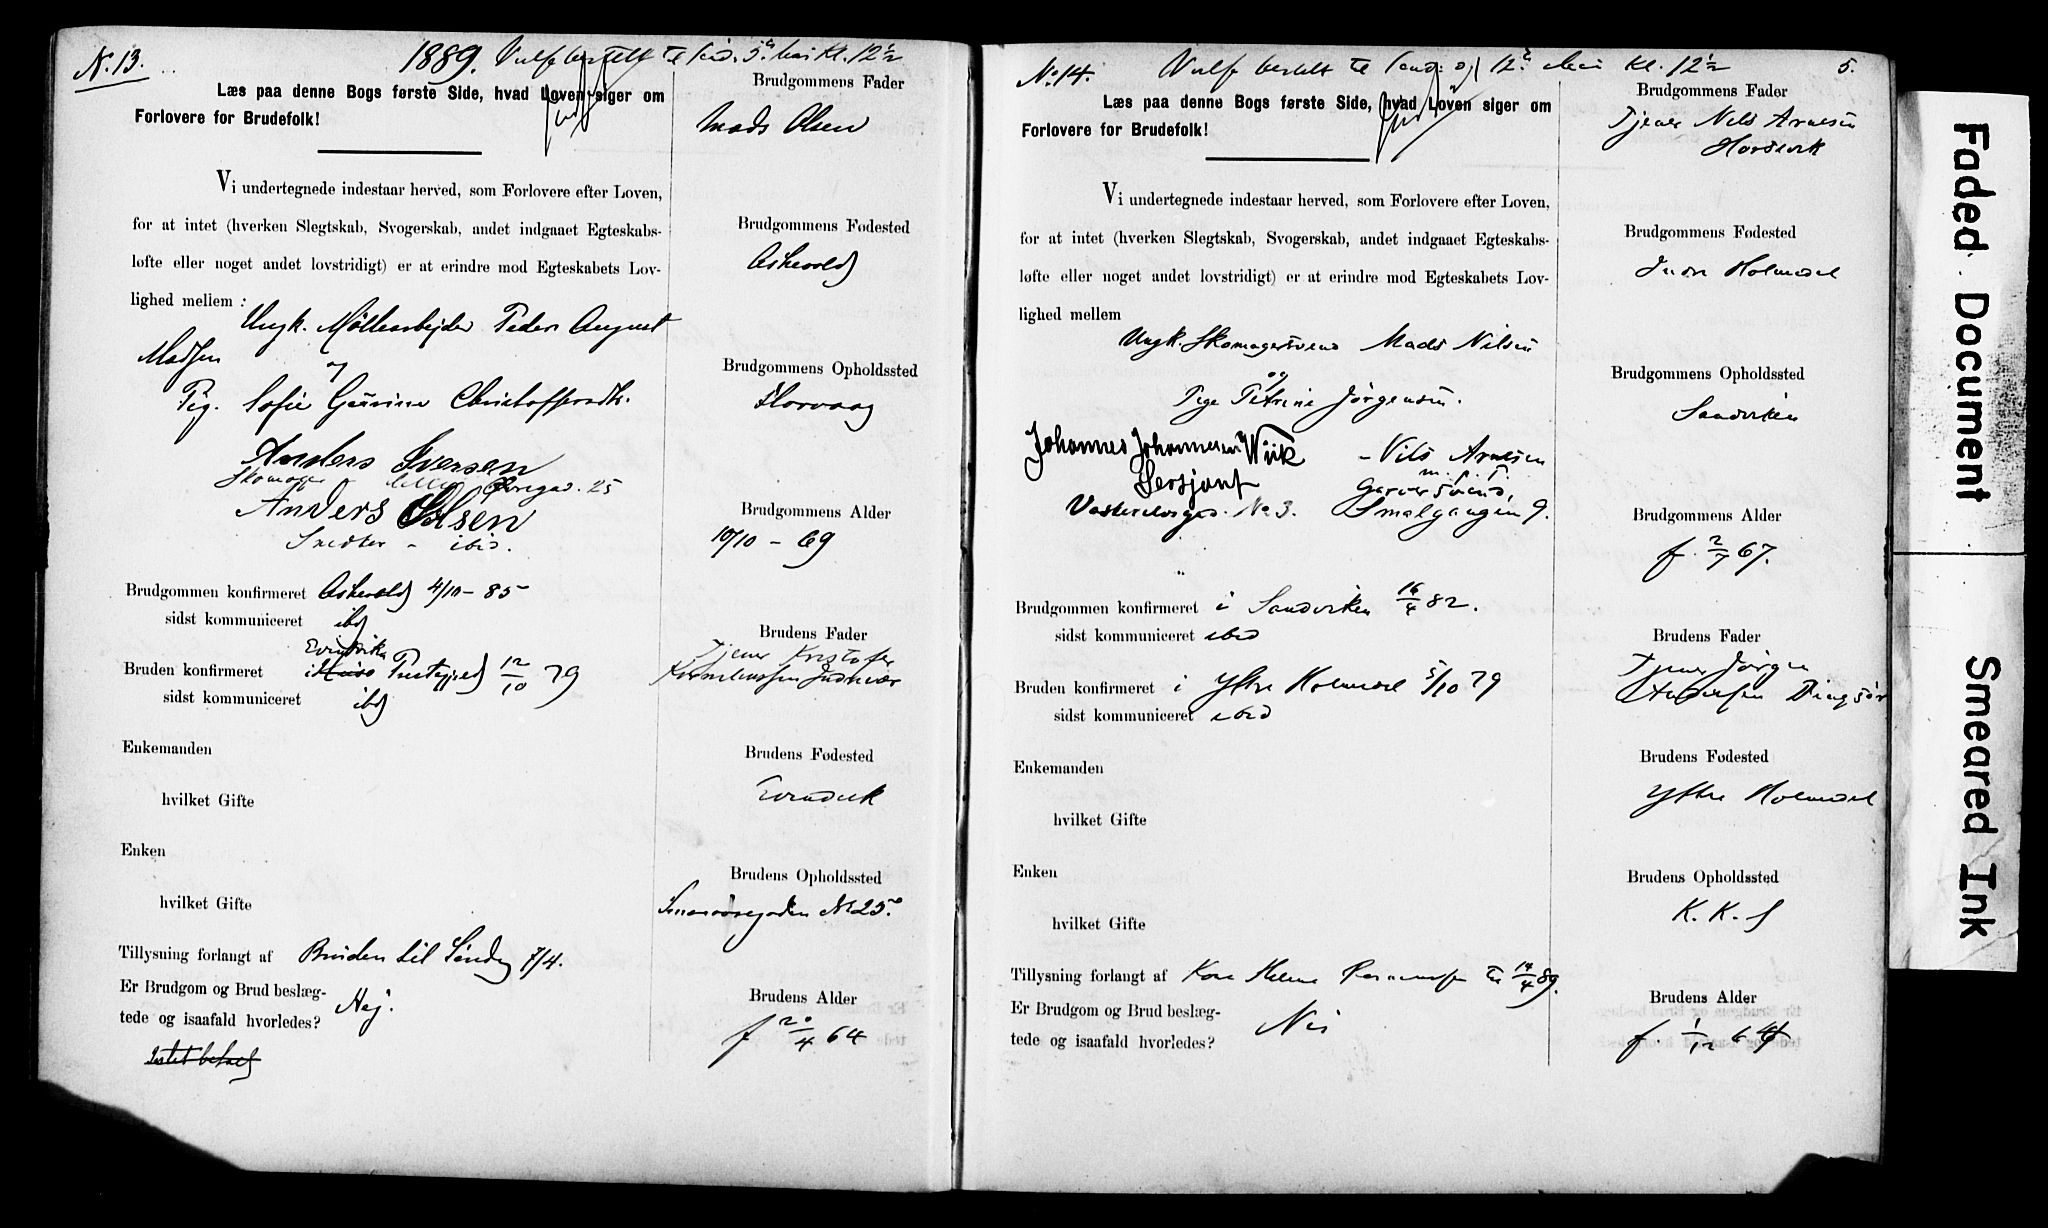 No. 13.
1889. Vulfe bestelt til Sønd. 5te Mai Kl. 12 1/2
Læs paa denne Bogs første Side, hvad Loven siger om
Forlovere for Brudefolk!
Vi undertegnede indestaar herved, som Forlovere efter Loven,
for at intet (hverken Slegtskab, Svogerskab, andet indgaaet Egteskabs-
løfte eller noget andet lovstridigt) er at erindre mod Egteskabets Lov-
lighed mellem :
Ungk. Möllearbejder Peder August
Madsen
og
Pig. Sofie Christoffersdtr.
Anders Iversen
Skomager 25
Anders Olsen
Snedker - ibid.
Brudgommen konfirmeret Askevold 4/10 - 85
sidst kommuniceret ibd
Evindvik
Bruden konfirmeret i Præstegjeld 12/10 79
sidst kommuniceret ibd
Enkemanden
hvilket Gifte
Enken
hvilket Gifte
Tillysning forlangt af Bruden til Søndag 7/4.
Er Brudgom og Brud beslæg-
tede og isaafald hvorledes? Nej.
Intet betalt
Brudgommens Fader
Mads Olsen
Brudgommens Fødested
Askevold
Brudgommens Opholdssted
Florvaag
Brudgommens Alder
10/10 - 69
Brudens Fader
Tjener Kristofer
Kornelinssen Indrevær
Brudens Fødested
Evindvik
Brudens Opholdssted
No 25.
Brudens Alder
f 20/4 64
No. 14.
Vulfe bestelt til Sønd: d. 12te Mai Kl. 12 1/2
5.
Læs paa denne Bogs første Side, hvad Loven siger om
Forlovere for Brudefolk!
Vi undertegnede indestaar herved, som Forlovere efter Loven,
for at intet (hverken Slegtskab, Svogerskab, andet indgaaet Egteskabs-
løfte eller noget andet lovstridigt) er at erindre mod Egteskabets Lov-
lighed mellem
Ungk. Skomagersvend Mads Nilsen
og
Pige Petrine Jørgensen.
Johannes Johannesen Wiik
Sersjant
No 3.
- Nils Arnesen
m. p. P.
Garversvend,
Smalgangen 9.
Brudgommen konfirmeret i Sandviken 16/4 82.
sidst kommuniceret ibid
Bruden konfirmeret i Yttre Holmedal 5/10 79
sidst kommuniceret ibid
Enkemanden
hvilket Gifte
Enken
hvilket Gifte
Tillysning forlangt af Kone Helene Rasmussen til 14/4 89.
Er Brudgom og Brud beslæg-
tede og isaafald hvorledes? Nei
Brudgommens Fader
Tjener Nils Arnesen
Brudgommens Fødested
Indre Holmedal
Brudgommens Opholdssted
Sandviken
Brudgommens Alder
f. 2/7 67.
Brudens Fader
Tjener Jørgen
Andersen Dingsør
Brudens Fødested
Yttre Holmedal
Brudens Opholdssted
K. K. S
Brudens Alder
f. 1/12 64
Faded Document
Smeared Ink